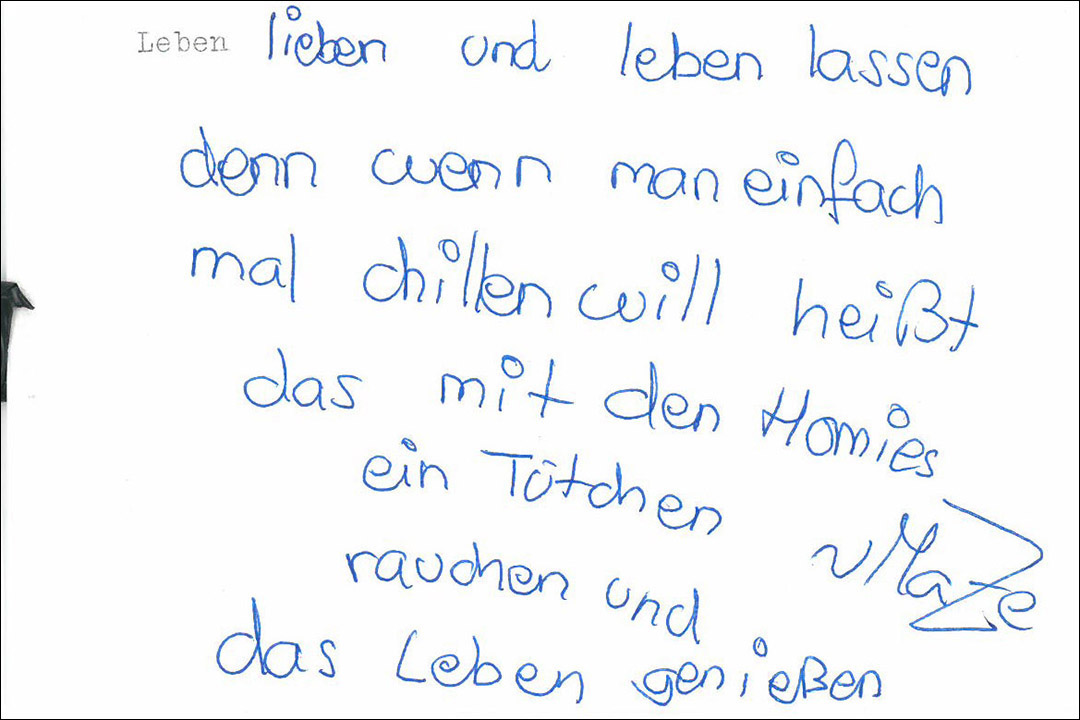 Leben lieben und leben lassen
denn wenn man einfach
mal chillen will heißt
das mit den Homies
ein Tütchen
rauchen und
das Leben genießen